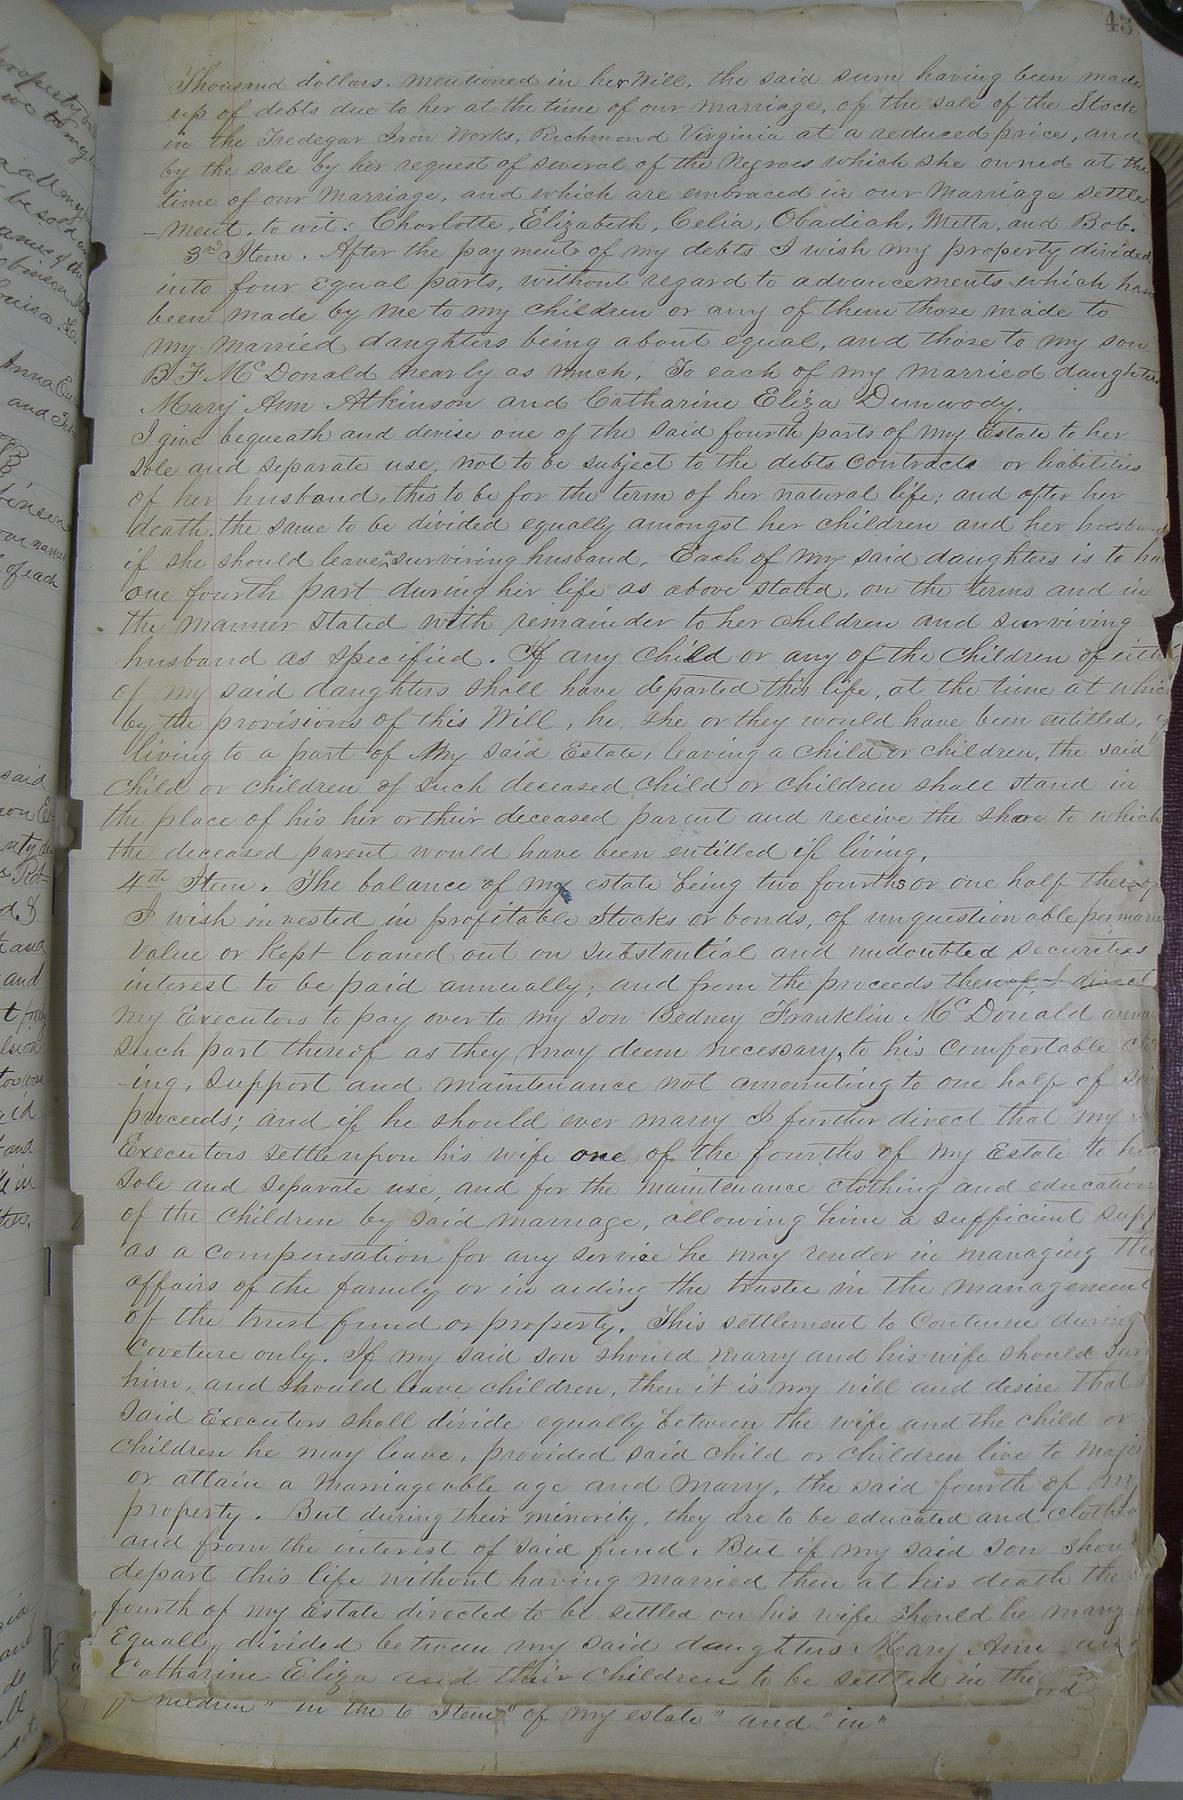 43
Thousand dollars, mentioned in her Will, the said sum having been made
up of debts due to her at the time of our marriage, of the sale of the Stock
in the Tredegar Iron Works, Richmond Virginia at a reduced price, and
by the sale by her request of several of the Negroes which she owned at the
time of our marriage, and which are embraced in our Marriage settle
-ment, to wit: Charlotte, Elizabeth, Celia, Obadiah, Metta, and Bob.
3rd Item. After the payment of my debts I wish my property divided
into four equal parts, without regard to advancements which have
been made by me to my children or any of them those made to
my married daughters being about equal, and those to my son
B F McDonald nearly as much. To each of my married daughters
Mary Ann Atkinson and Catharine Eliza Dunwody.
I give bequeath and devise one of the said fourth parts of my Estate to her
sole and separate use, not to be subject to the debts contracts or liabilities
of her husband, this to be for the term of her natural life; and after her
death, the same to be divided equally amongst her children and her husband
if she should leave a surviving husband. Each of my said daughters is to have
one fourth part during her life as above stated, on the terms and in
the manner stated with remainder to her children and surviving
husband as specified. If any child or any of the children of either
of my said daughters shall have departed this life, at the time at which
by the provisions of this Will, he she or they would have been entitled, if
living to a part of my said Estate, leaving a child or children, the said
child or children of such deceased child or children shall stand in
the place of his her or their deceased parent and receive the share to which
the deceased parent would have been entitled if living.
4th Item. The balance of my estate being two fourths or one half thereof
I wish invested in profitable Stocks or bonds, of unquestionable permanent
value or kept loaned out on substantial and undoubted securities
interest to be paid annually; and from the proceeds thereof I direct
my Executors to pay over to my son Bedney Franklin McDonald
such part thereof as they may deem necessary to his comfortable
-ing, support and maintenance not amounting to one half of
proceeds; and if he should ever marry I further direct that my
Executors settle upon his wife one of the fourths of my Estate to her
sole and separate use, and for the maintenance clothing and education
of the children by said marriage, allowing him a sufficient
as a compensation for any service he may render in managing the
affairs of the family or in aiding the trustee in the management
of the trust fund or property. This settlement to continue during
coveture only. If my said son should marry and his wife should
him, and should leave children, then it is my will and desire that
said Executors shall divide equally between the wife and the child or
children he may leave, provided said child or children live to
or attain a marriageable age and marry, the said fourth of my
property. But during their minority, they are to be educated and clothed
and from the interest of said fund. But if my said son
depart this life without having married then at his death the
fourth of my Estate directed to be settled on his wife should he marry
Equally divided between my said daughters Mary Ann and
Catharine Eliza and their children to be settled in the
children" in the 6 Item" of my estate" and "in"